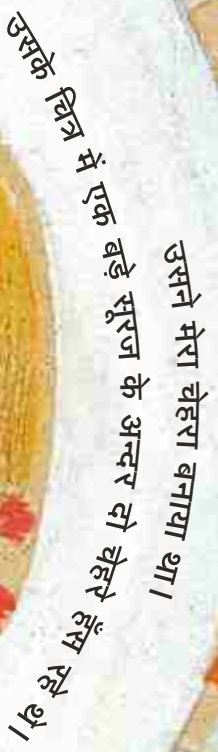 उसने मेरा चेहरा बनाया था।
उसके चित्र में एक बड़े सूरज के अन्दर दो चेहरे हँस रहे थे।